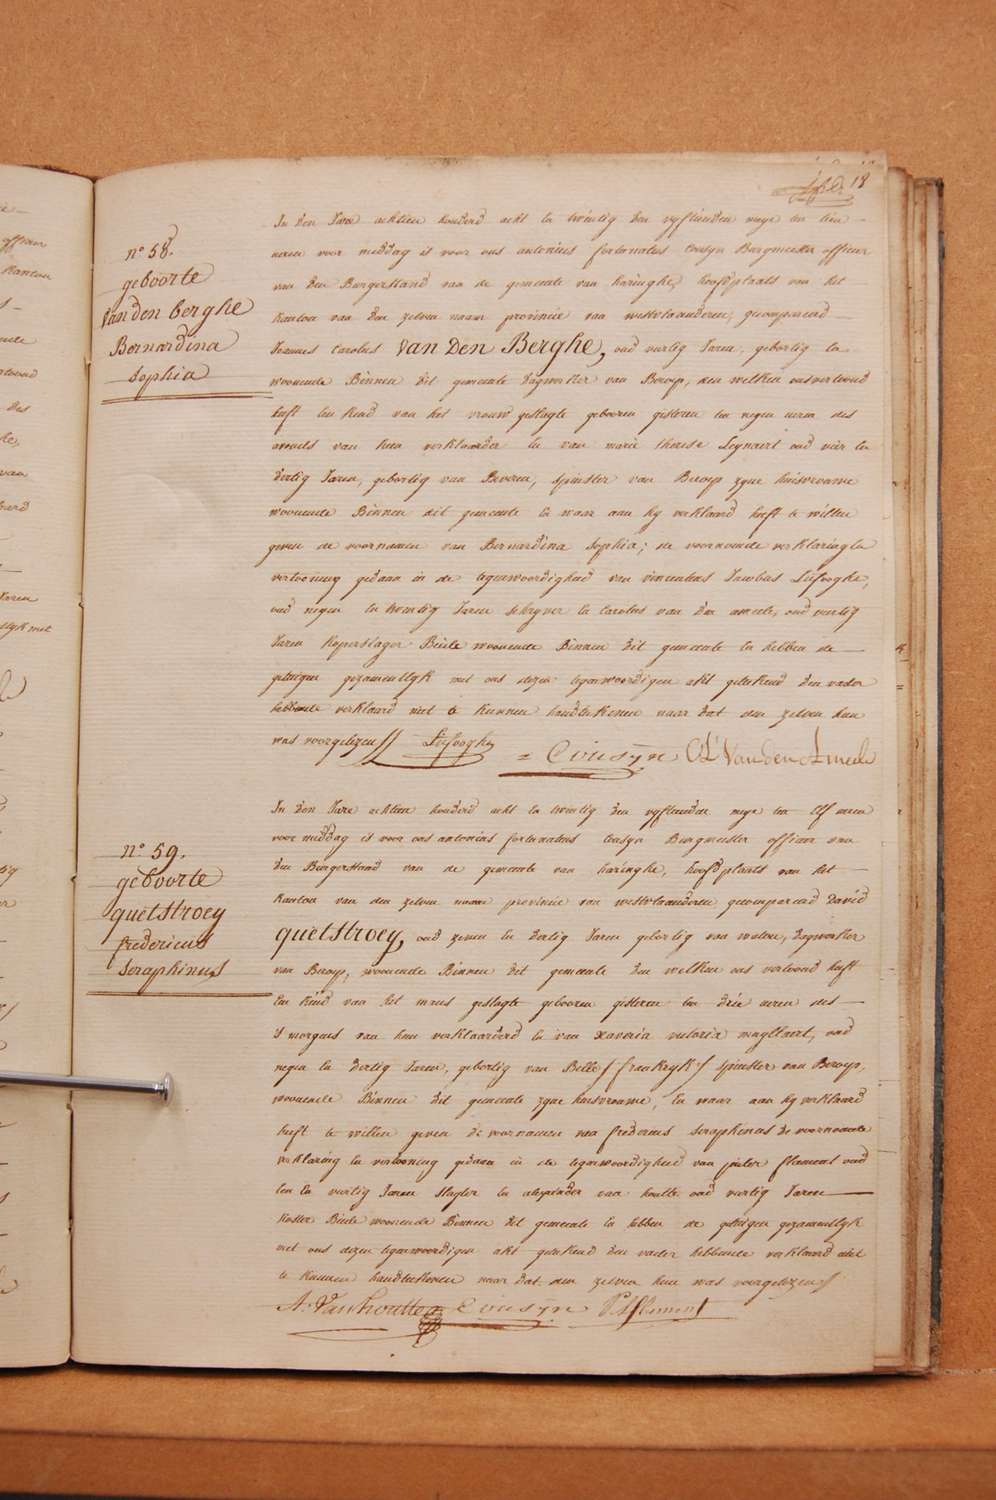 18
n° 58.
geboorte
Van den berghe
Bernardina
Sophia
In den Jare achtien honderd acht en twintig den vyftienden meye ten tien
uren voor middag is voor ons antonius fortunatus Cousyn Burgmeister officier
van den Burgerstand van de gemeente van haringhe, hoofdplaats van het
kanton van den zelven naam provincie van westvlaanderen, gecompareerd
Joannes Carolus Van Den Berghe, oud veertig Jaren, gebortig en
woonende Binnen dit gemeente dagwerker van Beroep, den welken ons vertoond
heeft een kind van het vrouw geslagte geboren gisteren ten negen uren des
avonds van hem verklaarder en van marie therese Leynaert oud vier en
dertig Jaren, gebortig van Proven, spinster van Beroep zyne huisvrouwe
woonende Binnen dit gemeente en waar aan hy verklaard heeft te willen
geven de voornamen van Bernardina Sophia; de voornoemde verklaring en
vertooning gedaan in de tegenwoordigheid van vincentius Jacobus
oud negen en twintig Jaren schryver en Carolus van den ameele, oud veertig
Jaren koperslager Beide woonende Binnen dit gemeente en hebben de
getuigen gezamentlyk met ons dezen tegenwoordigen akt geteekend den vader
hebbende verklaard niet te kunnen handteekenen naar dat den zelven hun
was voorgelezen
Cousyn Van den Ameele
n° 59.
geboorte
quetstroey
fredericus
Seraphinus
In den Jare achtien honderd acht en twintig den vyftienden meye ten Elf uren
voor middag is voor ons antonius fortunatus Cousyn Burgmeister officier van
den Burgerstand van de gemeente van haringhe, hoofdplaats van het
kanton van den zelven naam provincie van westvlaanderen gecompareerd David
quetstroey, oud zeven en dertig Jaren gebortig van watou, dagwerker
van Beroep, woonende Binnen dit gemeente den welken ons vertoond heeft
Een kind van het mans geslagte geboren gisteren ten drie uren des
's morgens van hem verklaarderd en van xaveria victoria muyllaert, oud
negen en dertig Jaren, gebortig van Belle / frankryk / spinster van Beroep,
woonende Binnen dit gemeente zyne huisvrouwe, En waar aan hy verklaard
heeft te willen geven de voornamen van fredericus Seraphinus de voornoemde
verklaring en vertooning gedaan in de tegenwoordigheid van pieter flament oud
een en veertig Jaren slagter en alexander van houtte oud veertig Jaren
koster Beide woonende Binnen dit gemeente en hebben de getuigen gezamentlyk
met ons dezen tegenwoordigen akt geteekend den vader hebbende verklaard niet
te kunnen handteekenen naar dat den zelven hun was voorgelezen /
A. Vanhoutte Cousyn Flament